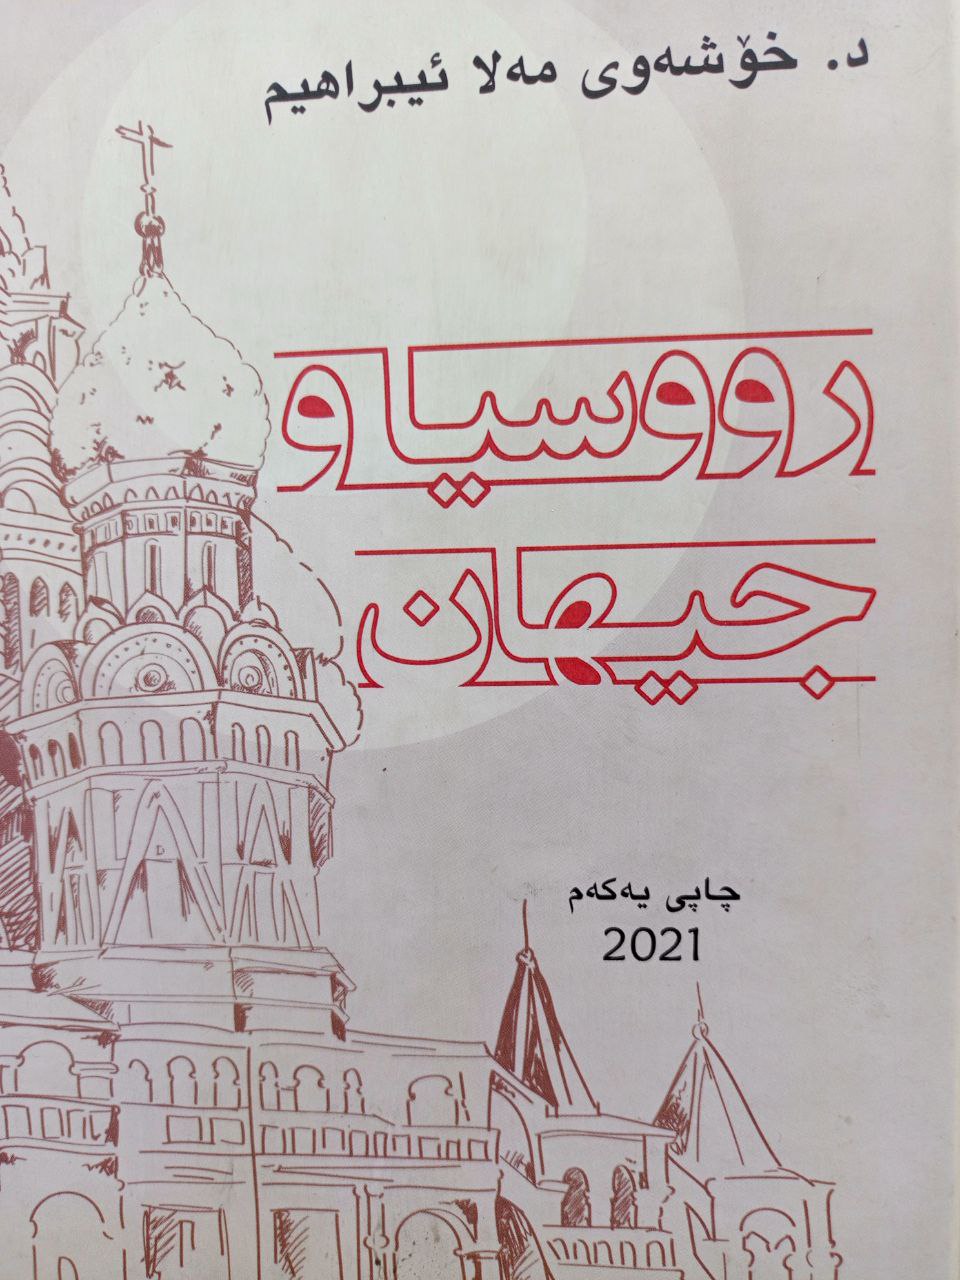 د. خۆشەوی مەلا ئیبراهیم
رووسیا و
جیهان
چاپی یەکەم
2021